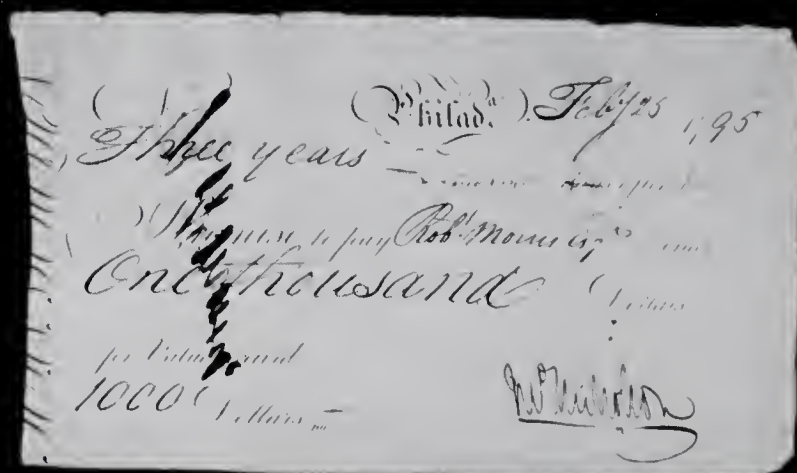 Philadᵃ. Feby 25 1795
Three years
promise to pay Robᵗ Morris Esqʳ
One thousand Dollars
for Value
1000 Dollars
Jnº Nicholson